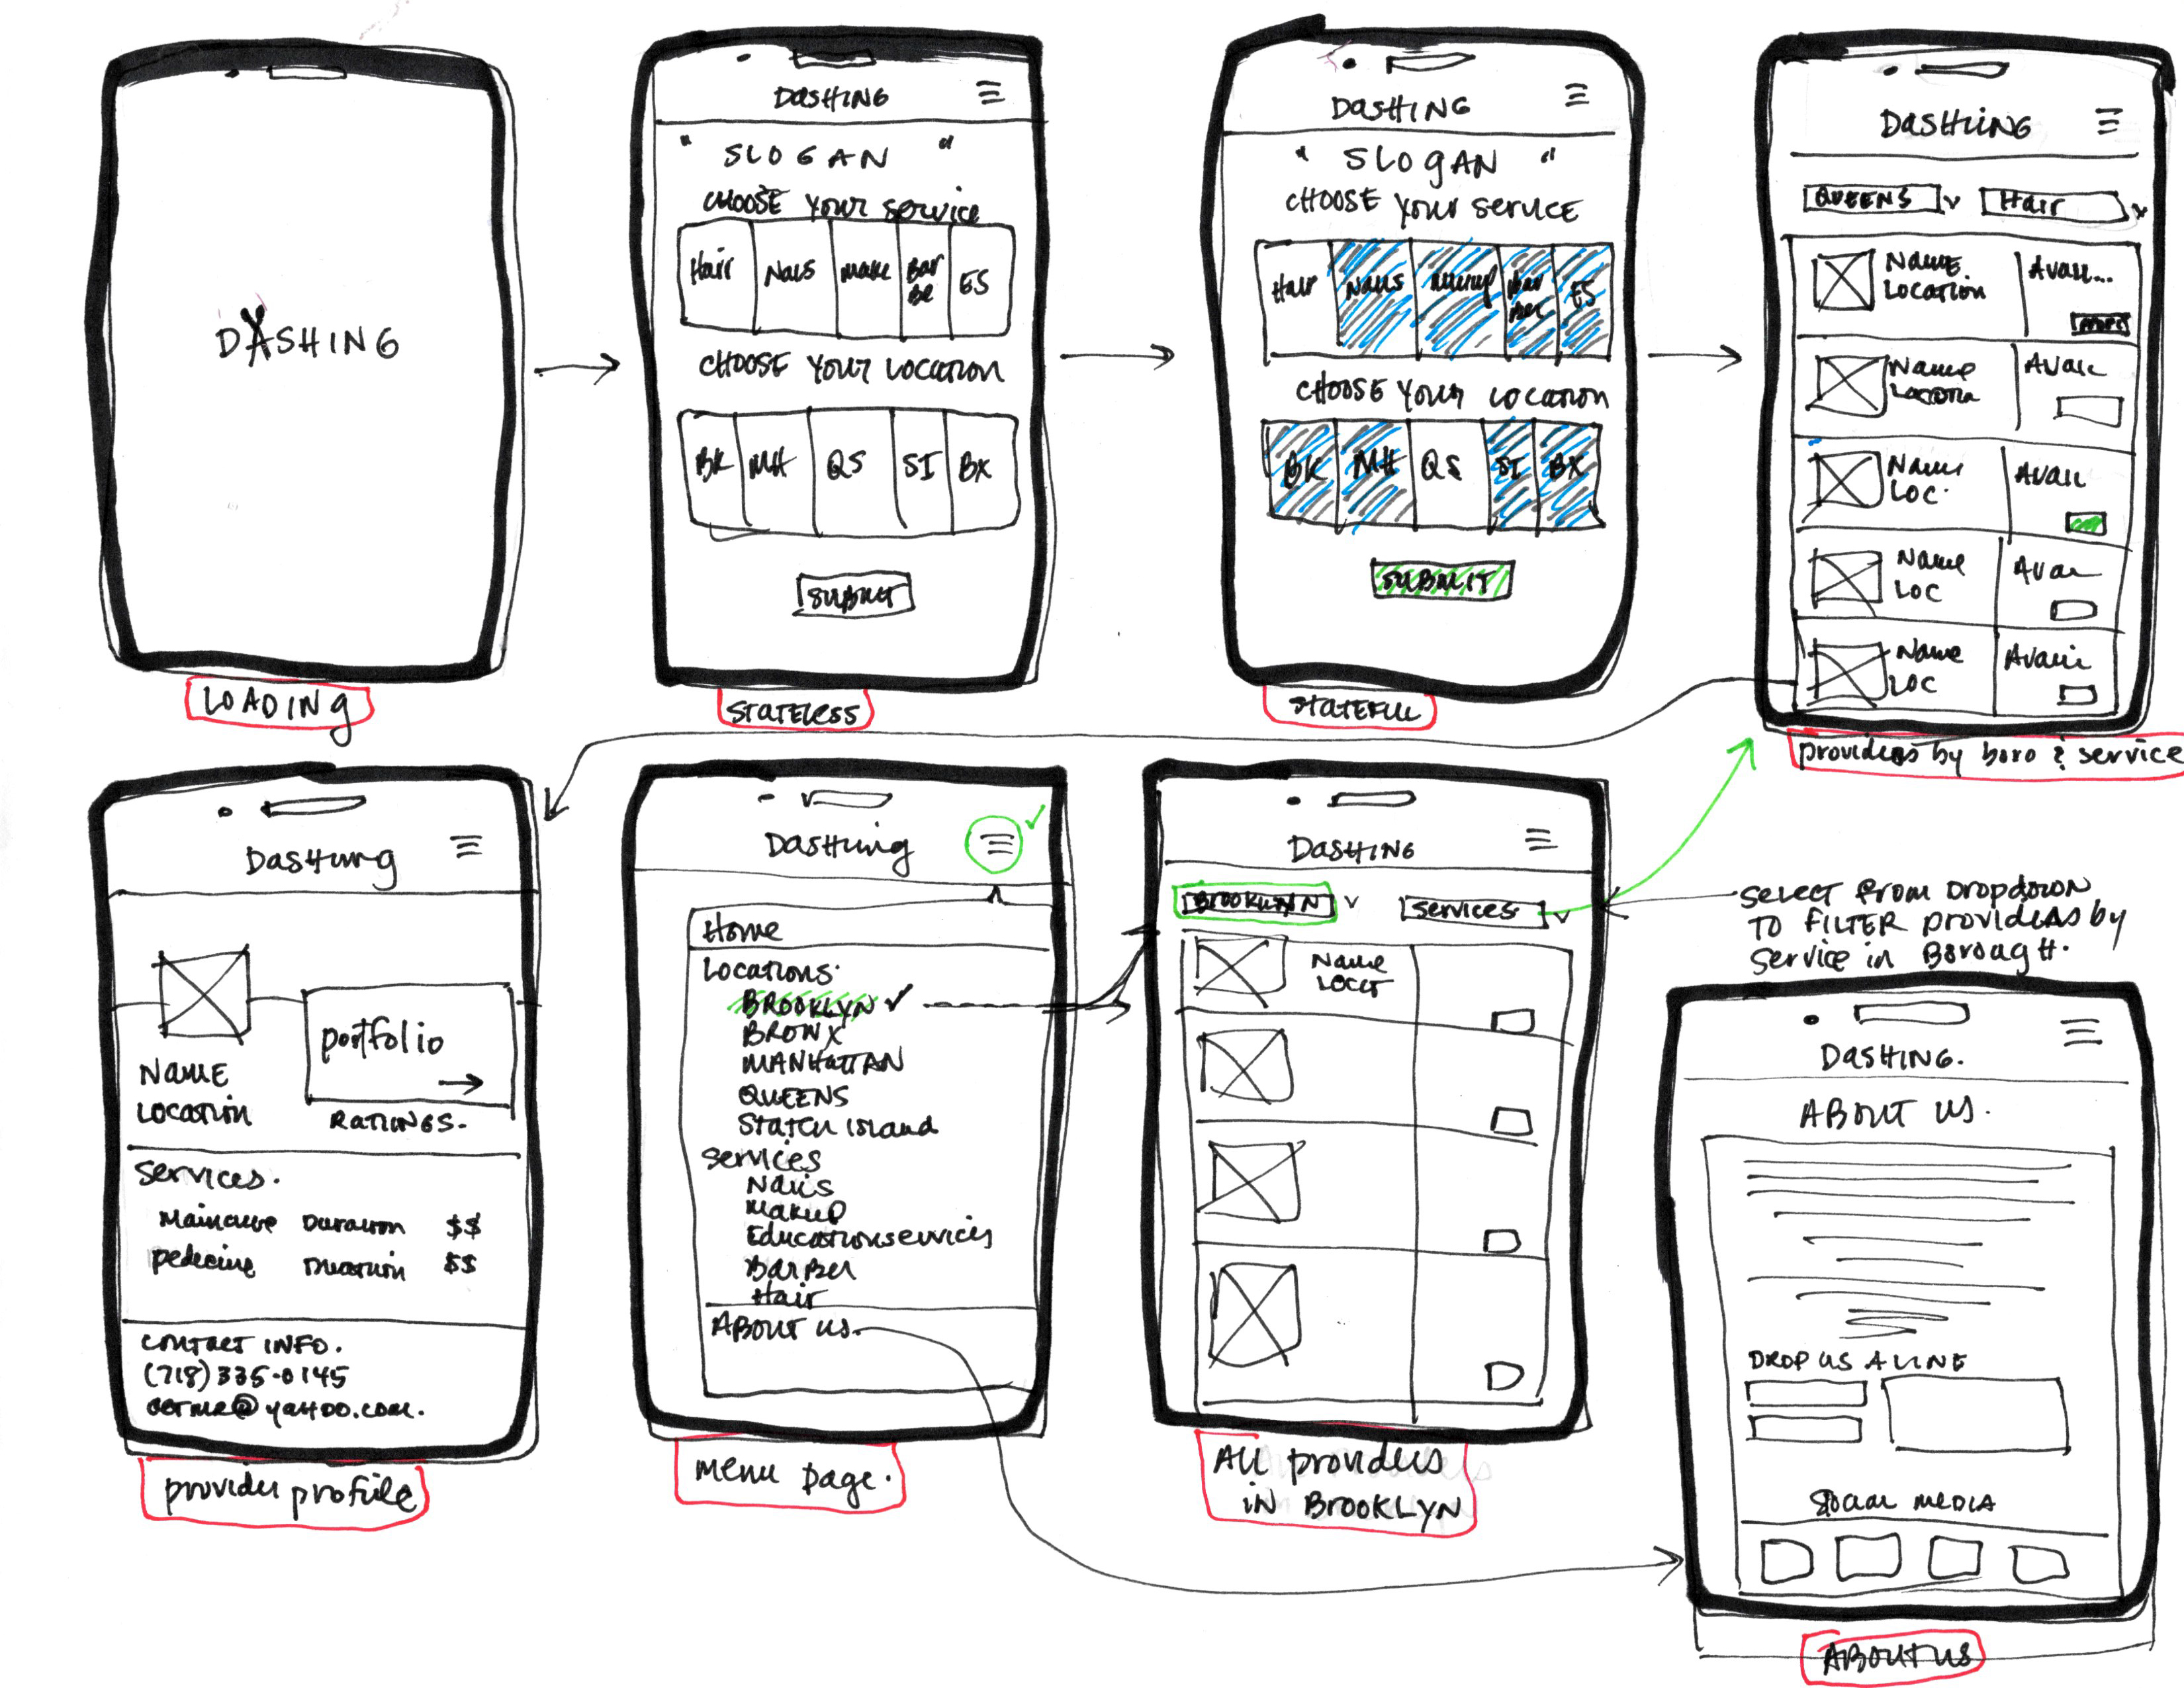 DASHING
LOADING
DASHING
" SLOGAN "
CHOOSE your service
Hair
Nails
make
Bar
Be
ES
CHOOSE your LOCATION
BK
MH
QS
SI
BX
SUBMIT
STATELESS
DASHING
" SLOGAN "
CHOOSE your service
Hair
Nails
Bar
Ber
ES
CHOOSE your LOCATION
BK
MH
QS
SI
BX
SUBMIT
STATEFUL
DASHING
QUEENS
Hair
Name
Location
Avail...
Name
Location
Avail
Name
LOC.
Avail
Name
LOC
Avai
Name
LOC
Avail
providers by boro & service
Dashing
NAME
LOCATION
portfolio
RATINGS.
Services.
Duration $$
Duration $$
CONTACT INFO.
(718) 335-0145
@yahoo.com.
provider profile
Dashing
Home
Locations.
BROOKLYN
BRONX
MANHATTAN
QUEENS
Staten island
Services
Nails
Makup
Education services
BarBer
Hair
ABOUT US.
menu page.
DASHING
BROOKLYN
Services
Name
LOCAT
All providers
IN BROOKLYN
SELECT from Dropdown
TO FILTER providers by
Service in Borough.
DASHING.
ABOUT US.
DROP US A LINE
Social MEDIA
ABOUT US